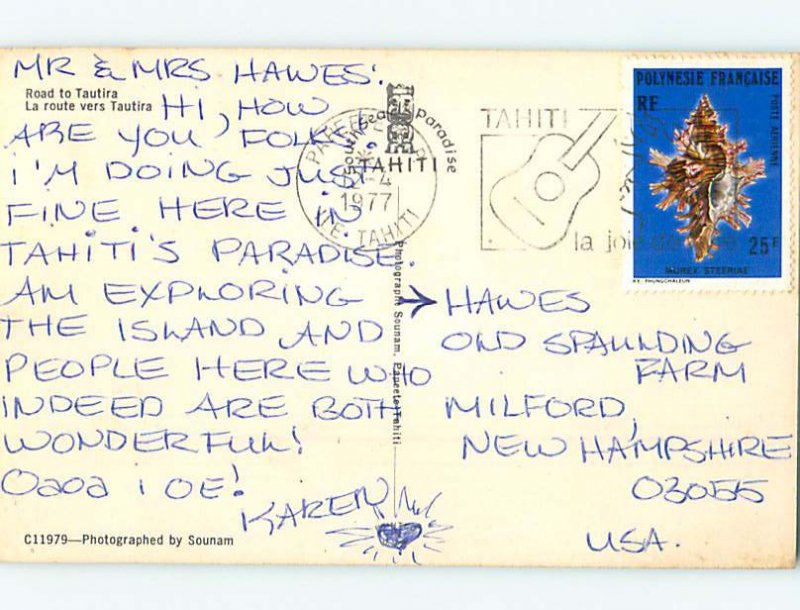 MR & MRS HAWES:
Road to Tautira
La route vers Tautira
HI, HOW
ARE YOU FOLKS?
I'M DOING JUST
FINE HERE IN
TAHITI'S PARADISE.
AM EXPLORING
THE ISLAND AND
PEOPLE HERE WHO
INDEED ARE BOTH
WONDERFUL!
Oaoa i OE!
KAREN
C11979—Photographed by Sounam
Photographe Sounam, Papeete/Tahiti
South sea paradise
TAHITI
PAPEETE
-4
1977
TAHITI
TAHITI
la joie de
POLYNESIE FRANÇAISE
RF
POSTE AERIENNE
25F
MUREX STEERIAE
PHUNGCHALEUN
HAWES
OLD SPAULDING
FARM
MILFORD,
NEW HAMPSHIRE
03055
USA.